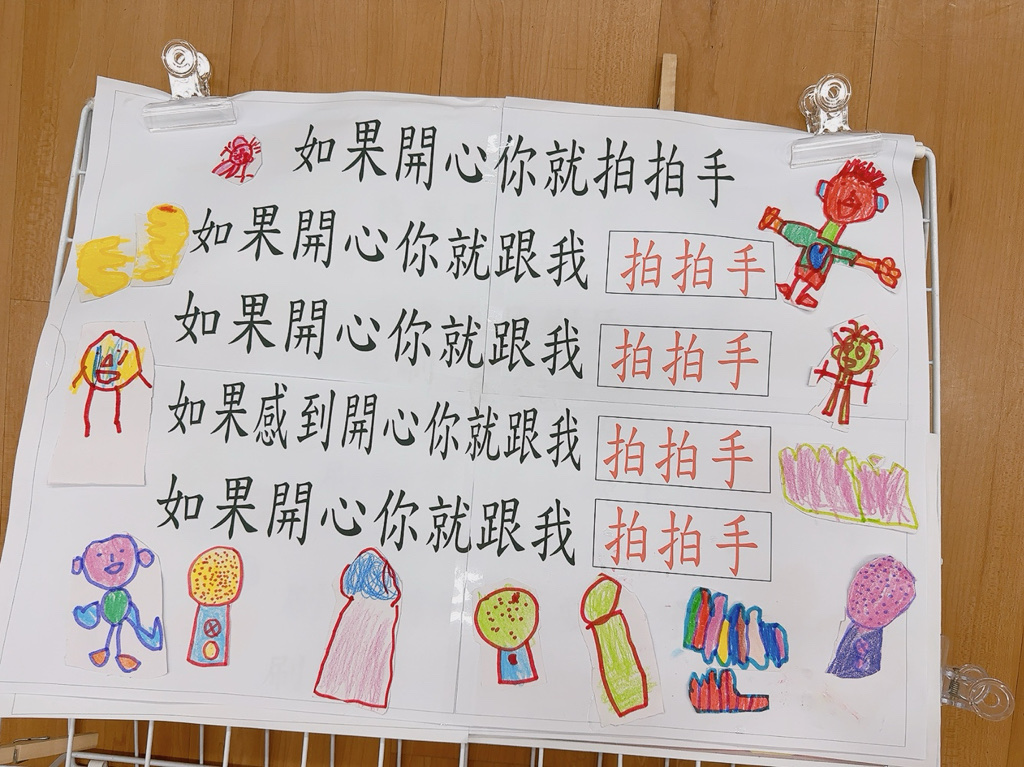 如果開心你就拍拍手
如果開心你就跟我 拍拍手
如果開心你就跟我 拍拍手
如果感到開心你就跟我 拍拍手
如果開心你就跟我 拍拍手